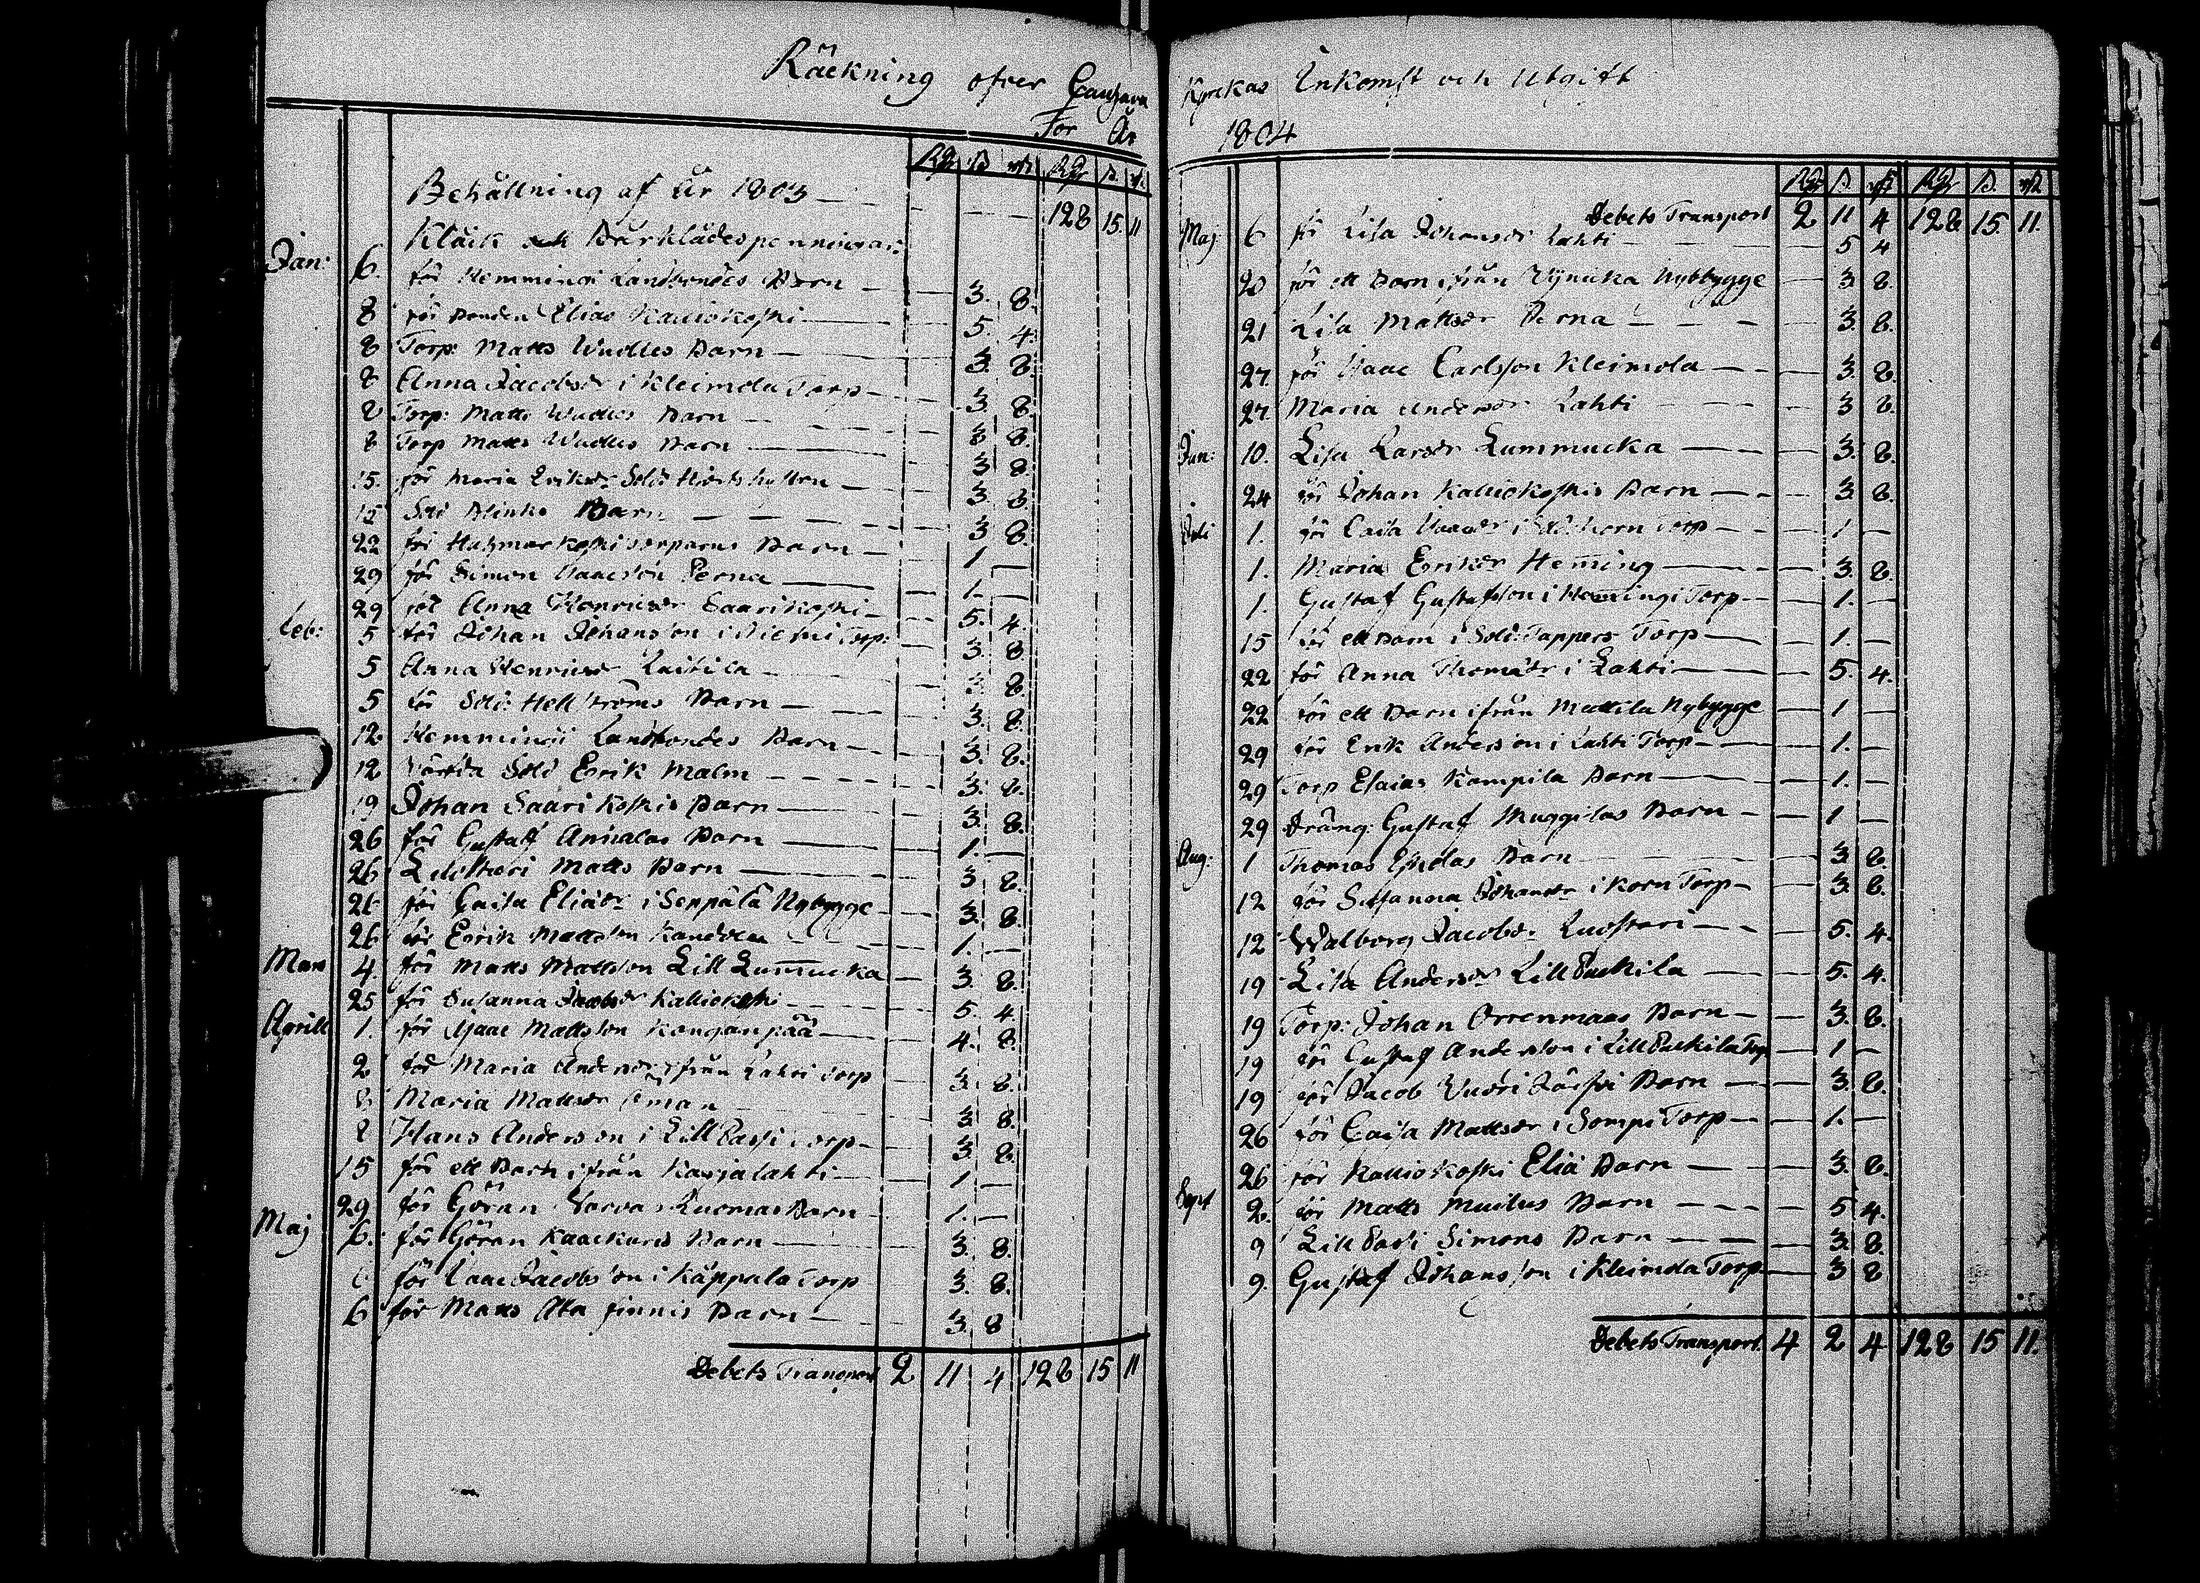 Räckning öfver
Kyrkas Inkomst och Utgift
För År 1804
Rdr ß rst Rdr ß. rst.
Behållning af år 1803 128 15. 11
Klåck och Bårklädespenningar:
Jan: 6. för Hemmingi Landbondes Barn 3. 8.
8 för Bonden Elias Kalliokoski 5. 4.
8 Torp: Matts Wudlus Barn 3. 8.
8 Anna Jacobsdr i Kleimola Torp 3. 8.
8 Torp: Matts Wudlus Barn 3 8.
8 Torp Matts Wudlus Barn 3 8.
15. för Maria Eriksdr Sold: 3. 8.
15 Sold Blinks Barn 3 8.
22 för torparns Barn 1
29 för Simon Isaacsson Perna 1.
29 för Anna Henricsdr Saarikoski 5. 4.
Feb: 5 för Johan Johansson i Niemi Torp: 3. 8.
5 Anna Henricsdr Laitila 3. 8.
5 för Sold: Hellströms Barn 3. 8.
12. Hemmingi Landbondes Barn 3. 8.
12 Sold Erik Malm 3. 8.
19 Johan Saarikoskis Barn 3. 8.
26 för Gustaf Annalas Barn 1.
26 Matts Barn 3 8.
26 för Caisa Eliædr i Seppälä Nybygge 3. 8.
26 för Erik Mattsson 1.
Mars 4. för Matts Mattsson Lill Lum̅ucka 3. 8.
25 för Susanna Jacobsdr Kalliokoski 5. 4.
Aprill 1. för Isaac Mattsson Kanganpää 4. 8.
2 för Maria Andersdr ifrån Lahti Torp 3. 8.
8 Maria Mattsdr 3 8.
8 Hans Andersson i Lill Passi Torp 3 8.
15 för ett Barn ifrån Karjalahti 1
29 för Göran Luomas Barn 1.
Maj 6. för Göran Kaackuris Barn 3. 8.
6 för Isaac Jacobsson i Käppälä Torp 3. 8.
6 för Matts Ala finnis Barn 3. 8
Debets Transport 2 11 4 128 15 11
Rdr ß. rst Rdr ß. rst.
Debets Transport 2 11 4 128. 15. 11.
Maj: 6 för Lisa Johansdr Lahti 5 4
20 för ett Barn ifrån Nybbygge 3 8.
21 Lisa Mattsdr Perna 3. 8.
27. för Isaac Carlsson Kleimola 3. 8.
27 Maria Andersdr Lahti 3 8.
Jun: 10. Lisa Larsdr Lummucka 3. 8.
24 för Johan Kalliokoskis Barn 3. 8.
Juli 1. för Caisa Isaacsdr i Sold: Korn Torp 1
1. Maria Ericsdr Hem̅ing 3. 8.
1. Gustaf Gustafsson i Hemingi Torp 1.
15 för ett Barn i Sold: Tappers Torp 1.
22 för Anna Thomædr i Lahti 5. 4.
22 för ett Barn ifrån Mattila Nybygge 1
29 för Erik Andersson i Lahti Torp 1.
29 Torp Elaias Kampila Barn 1.
29 Dräng: Gustaf Muggilas Barn 1
Aug: 1 Thomas Barn 3 8.
12 för Susanna Johansdr i Korn Torp 3. 8.
12 Walborg Jacobsdr Luostari 5. 4.
19 Lisa Andersdr Lill Puckila 5. 4.
19 Torp: Johan Orrenmaas Barn 3. 8.
19 för Gustaf Andersson i Lill Puckila Torp 1
19 för Jacob Wuori Barn 3. 8.
26 för Caisa Mattsdr i Sompi Torp 1.
26 för Kalliokoski Eliæ Barn 3. 8.
Sept 2. för Matts Muilus Barn 5 4.
9 Lill Passi Simons Barn 3. 8.
9. Gustaf Johansson i Kleimola Torp 3 8
Debets Transport 4 2 4 128 15 11.